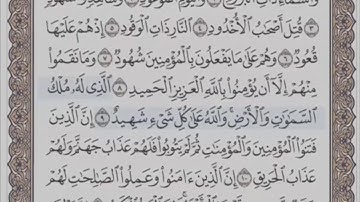 وَٱلسَّمَآءِ ذَاتِ ٱلْبُرُوجِ ١ وَٱلْيَوْمِ ٱلْمَوْعُودِ ٢ وَشَاهِدٍ وَمَشْهُودٍ
٣ قُتِلَ أَصْحَٰبُ ٱلْأُخْدُودِ ٤ ٱلنَّارِ ذَاتِ ٱلْوَقُودِ ٥ إِذْ هُمْ عَلَيْهَا
قُعُودٌ ٦ وَهُمْ عَلَىٰ مَا يَفْعَلُونَ بِٱلْمُؤْمِنِينَ شُهُودٌ ٧ وَمَا نَقَمُوا۟
مِنْهُمْ إِلَّآ أَن يُؤْمِنُوا۟ بِٱللَّهِ ٱلْعَزِيزِ ٱلْحَمِيدِ ٨ ٱلَّذِى لَهُۥ مُلْكُ
ٱلسَّمَٰوَٰتِ وَٱلْأَرْضِ وَٱللَّهُ عَلَىٰ كُلِّ شَىْءٍ شَهِيدٌ ٩ إِنَّ ٱلَّذِينَ
فَتَنُوا۟ ٱلْمُؤْمِنِينَ وَٱلْمُؤْمِنَٰتِ ثُمَّ لَمْ يَتُوبُوا۟ فَلَهُمْ عَذَابُ جَهَنَّمَ وَلَهُمْ
عَذَابُ ٱلْحَرِيقِ ١٠ إِنَّ ٱلَّذِينَ ءَامَنُوا۟ وَعَمِلُوا۟ ٱلصَّٰلِحَٰتِ لَهُمْ